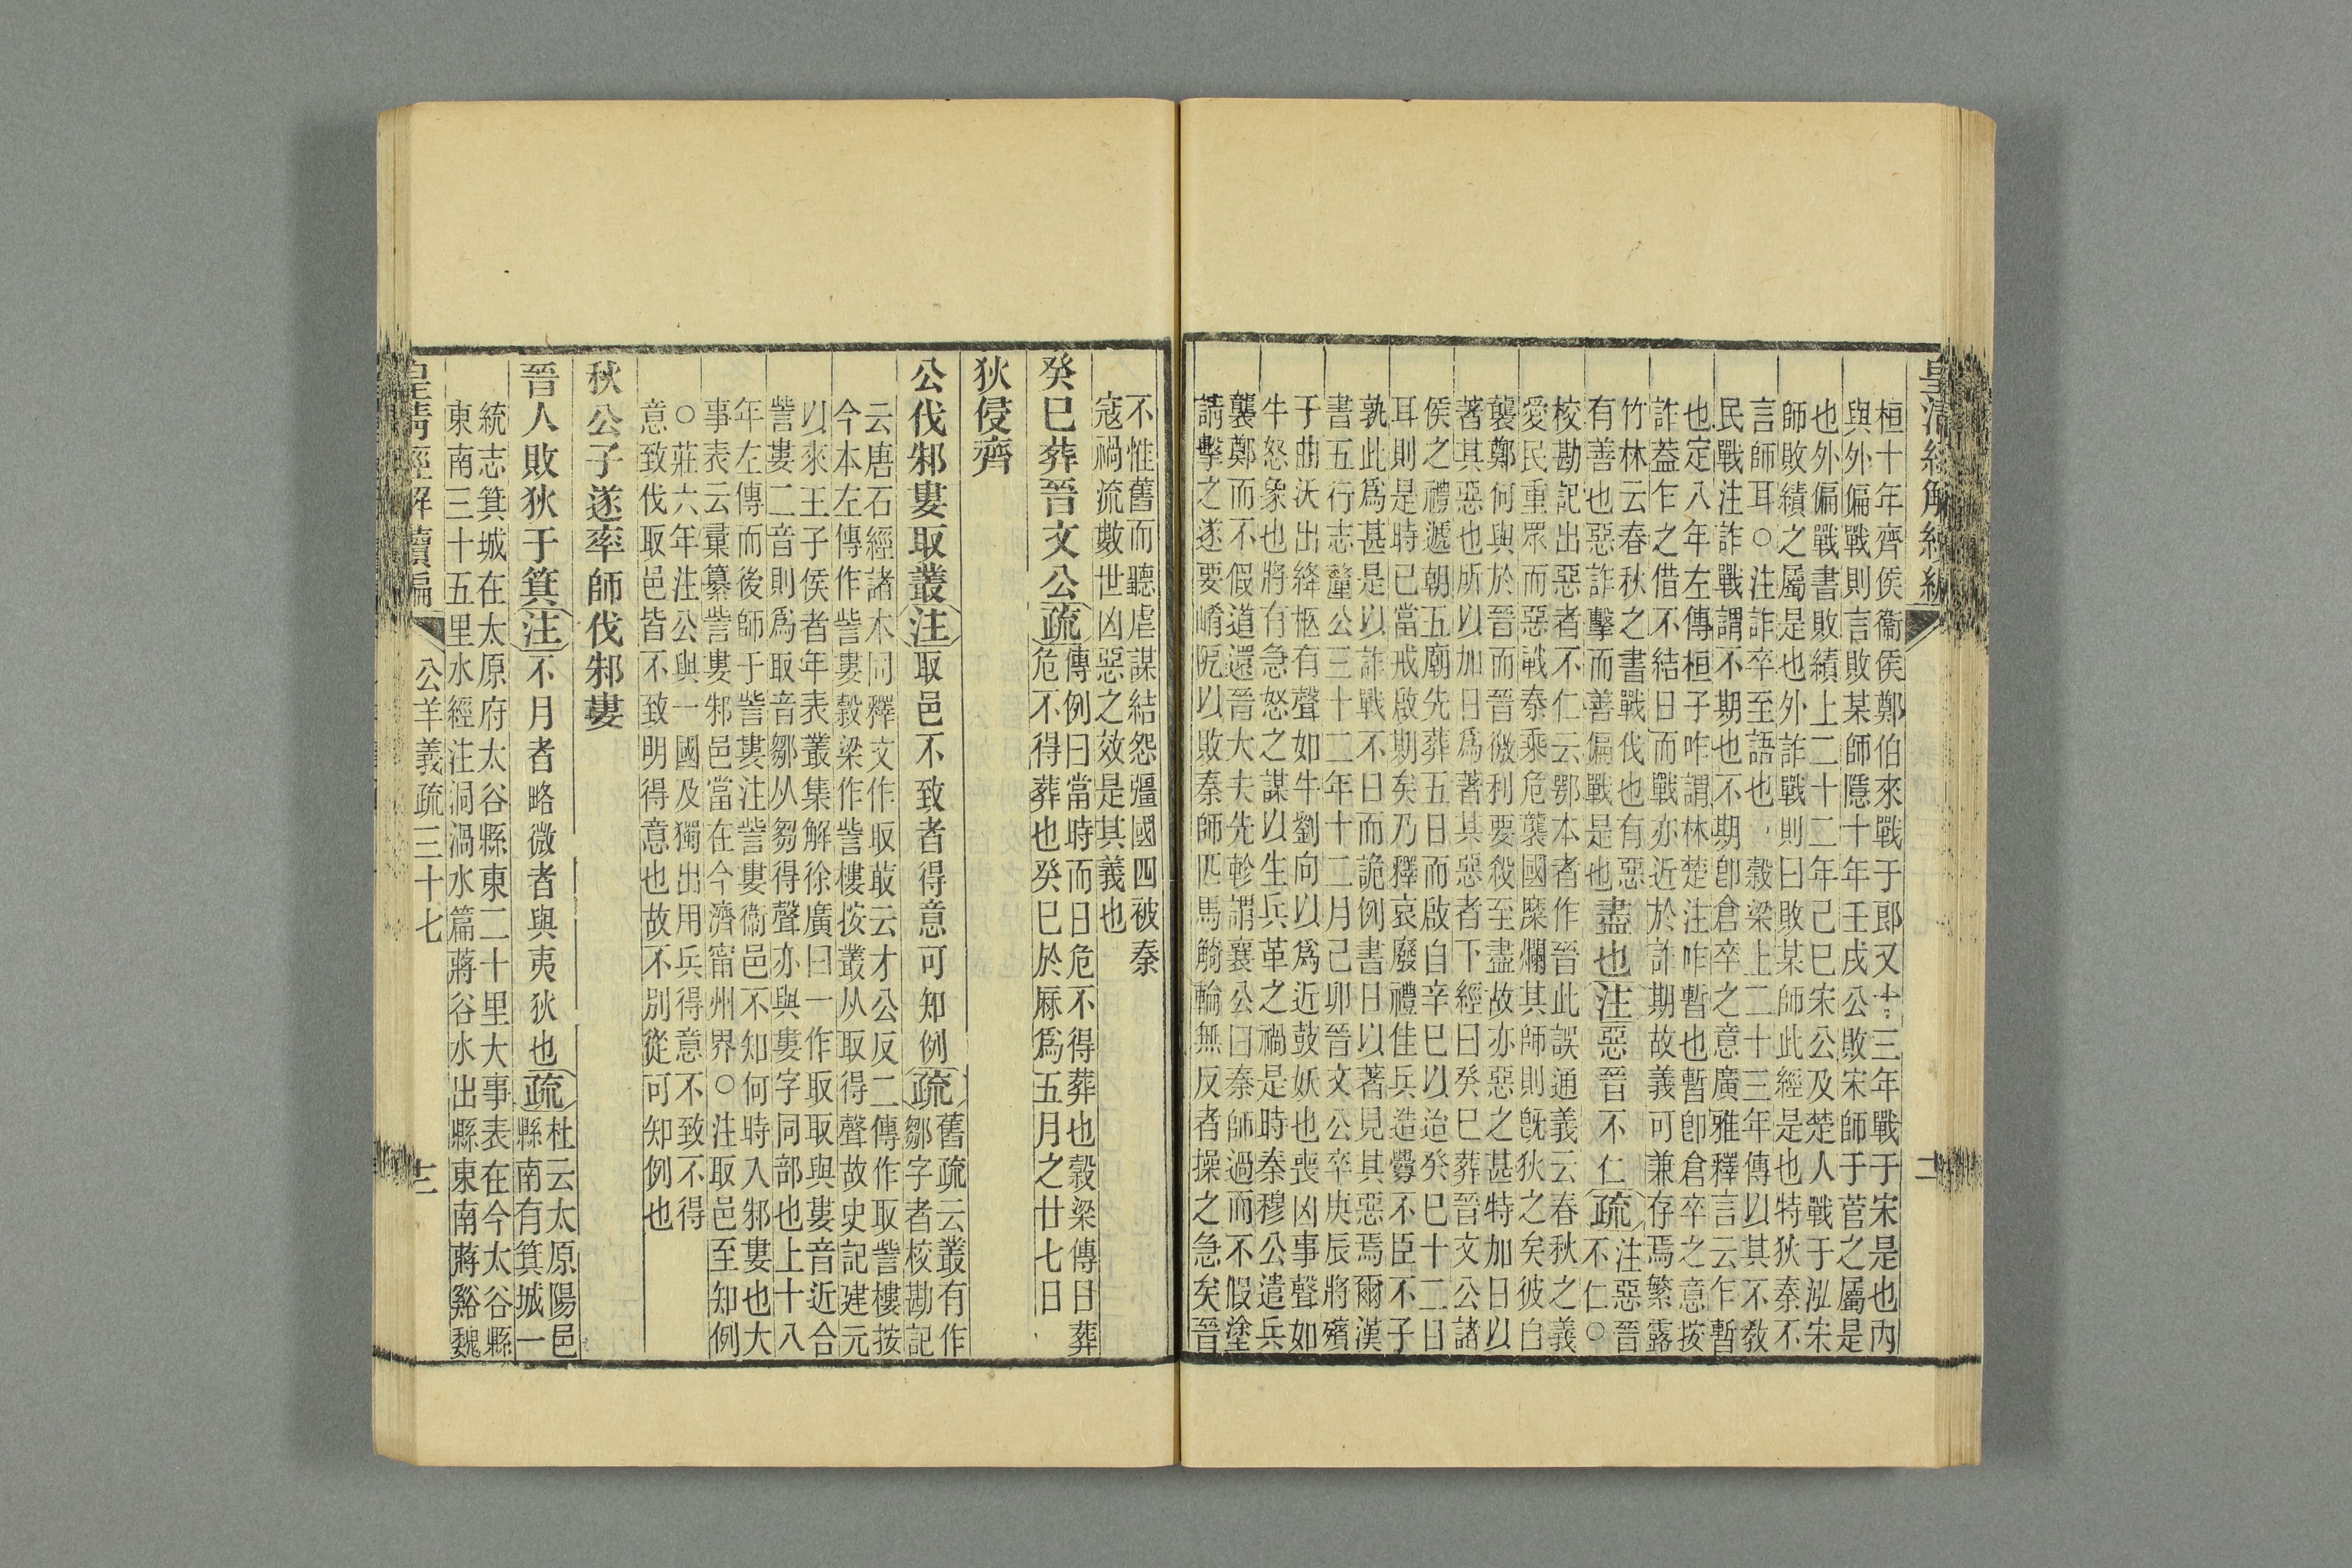 皇清經解續編 二
桓十年齊侯衞侯鄭伯來戰于郎又十三年戰于宋是也內
與外偏戰則言敗某師隱十年壬戌公敗宋師于菅之屬是
也外偏戰書敗績上二十二年己巳宋公及楚人戰于泓宋
師敗績之屬是也外詐戰則曰敗某師此經是也特狄秦不
言師耳○注詐卒至語也 穀梁上二十三年傳以其不敎
民戰注詐戰謂不期也不期卽倉卒之意廣雅釋言云乍暫
也定八年左傳桓子咋謂林楚注咋暫也暫卽倉卒之意按
詐蓋乍之借不結日而戰亦近於詐期故義可兼存焉繁露
竹林云春秋之書戰伐也有惡
有善也惡詐擊而善偏戰是也
盡也注惡晉不仁疏
注惡晉
不仁○
校勘記出惡者不仁云鄂本者作晉此誤通義云春秋之義
愛民重眾而惡戰秦乘危襲國糜爛其師則旣狄之矣彼白
襲鄭何與於晉而晉徼利要殺至盡故亦惡之甚特加日以
著其惡也所以加日爲著其惡者下經曰癸巳葬晉文公諸
侯之禮遞朝五廟先葬五日而啟自辛巳以迨癸巳十二日
耳則是時已當戒啟期矣乃釋哀廢禮佳兵造釁不臣不子
孰此爲甚是以詐戰不日而詭例書日以著見其惡焉爾漢
書五行志釐公三十二年十二月己卯晉文公卒庚辰將殯
于曲沃出絳柩有聲如牛劉向以爲近鼓妖也喪凶事聲如
牛怒象也將有急怒之謀以生兵革之禍是時秦穆公遣兵
襲鄭而不假道還晉大夫先軫謂襄公曰秦師過而不假塗
請擊之遂要崤阨以敗秦師匹馬觭輪無反者操之急矣晉
不惟舊而聽虐謀結怨彊國四被秦
寇禍流數世凶惡之效是其義也
癸巳葬晉文公疏
傳例曰當時而日危不得葬也穀梁傳日葬
危不得葬也癸巳於厤爲五月之廿七日
狄侵齊
公伐邾婁取叢注取邑不致者得意可知例疏
舊疏云叢有作
鄒字者校勘記
云唐石經諸本同釋文作取菆云才公反二傳作取訾樓按
今本左傳作訾婁穀梁作訾樓按叢从取得聲故史記建元
以來王子侯者年表叢集解徐廣曰一作取取與婁音近合
訾婁二音則爲取音鄒从芻得聲亦與婁字同部也上十八
年左傳而後師于訾婁注訾婁衞邑不知何時入邾婁也大
事表云彙纂訾婁邾邑當在今濟甯州界○注取邑至知例
○莊六年注公與一國及獨出用兵得意不致不得
意致伐取邑皆不致明得意也故不別從可知例也
秋公子遂率師伐邾婁
晉人敗狄于箕注不月者略微者與夷狄也疏
杜云太原陽邑
縣南有箕城一
統志箕城在太原府太谷縣東二十里大事表在今太谷縣
東南三十五里水經注洞渦水篇蔣谷水出縣東南蔣谿魏
皇清經解續編 公羊義疏三十七 十二